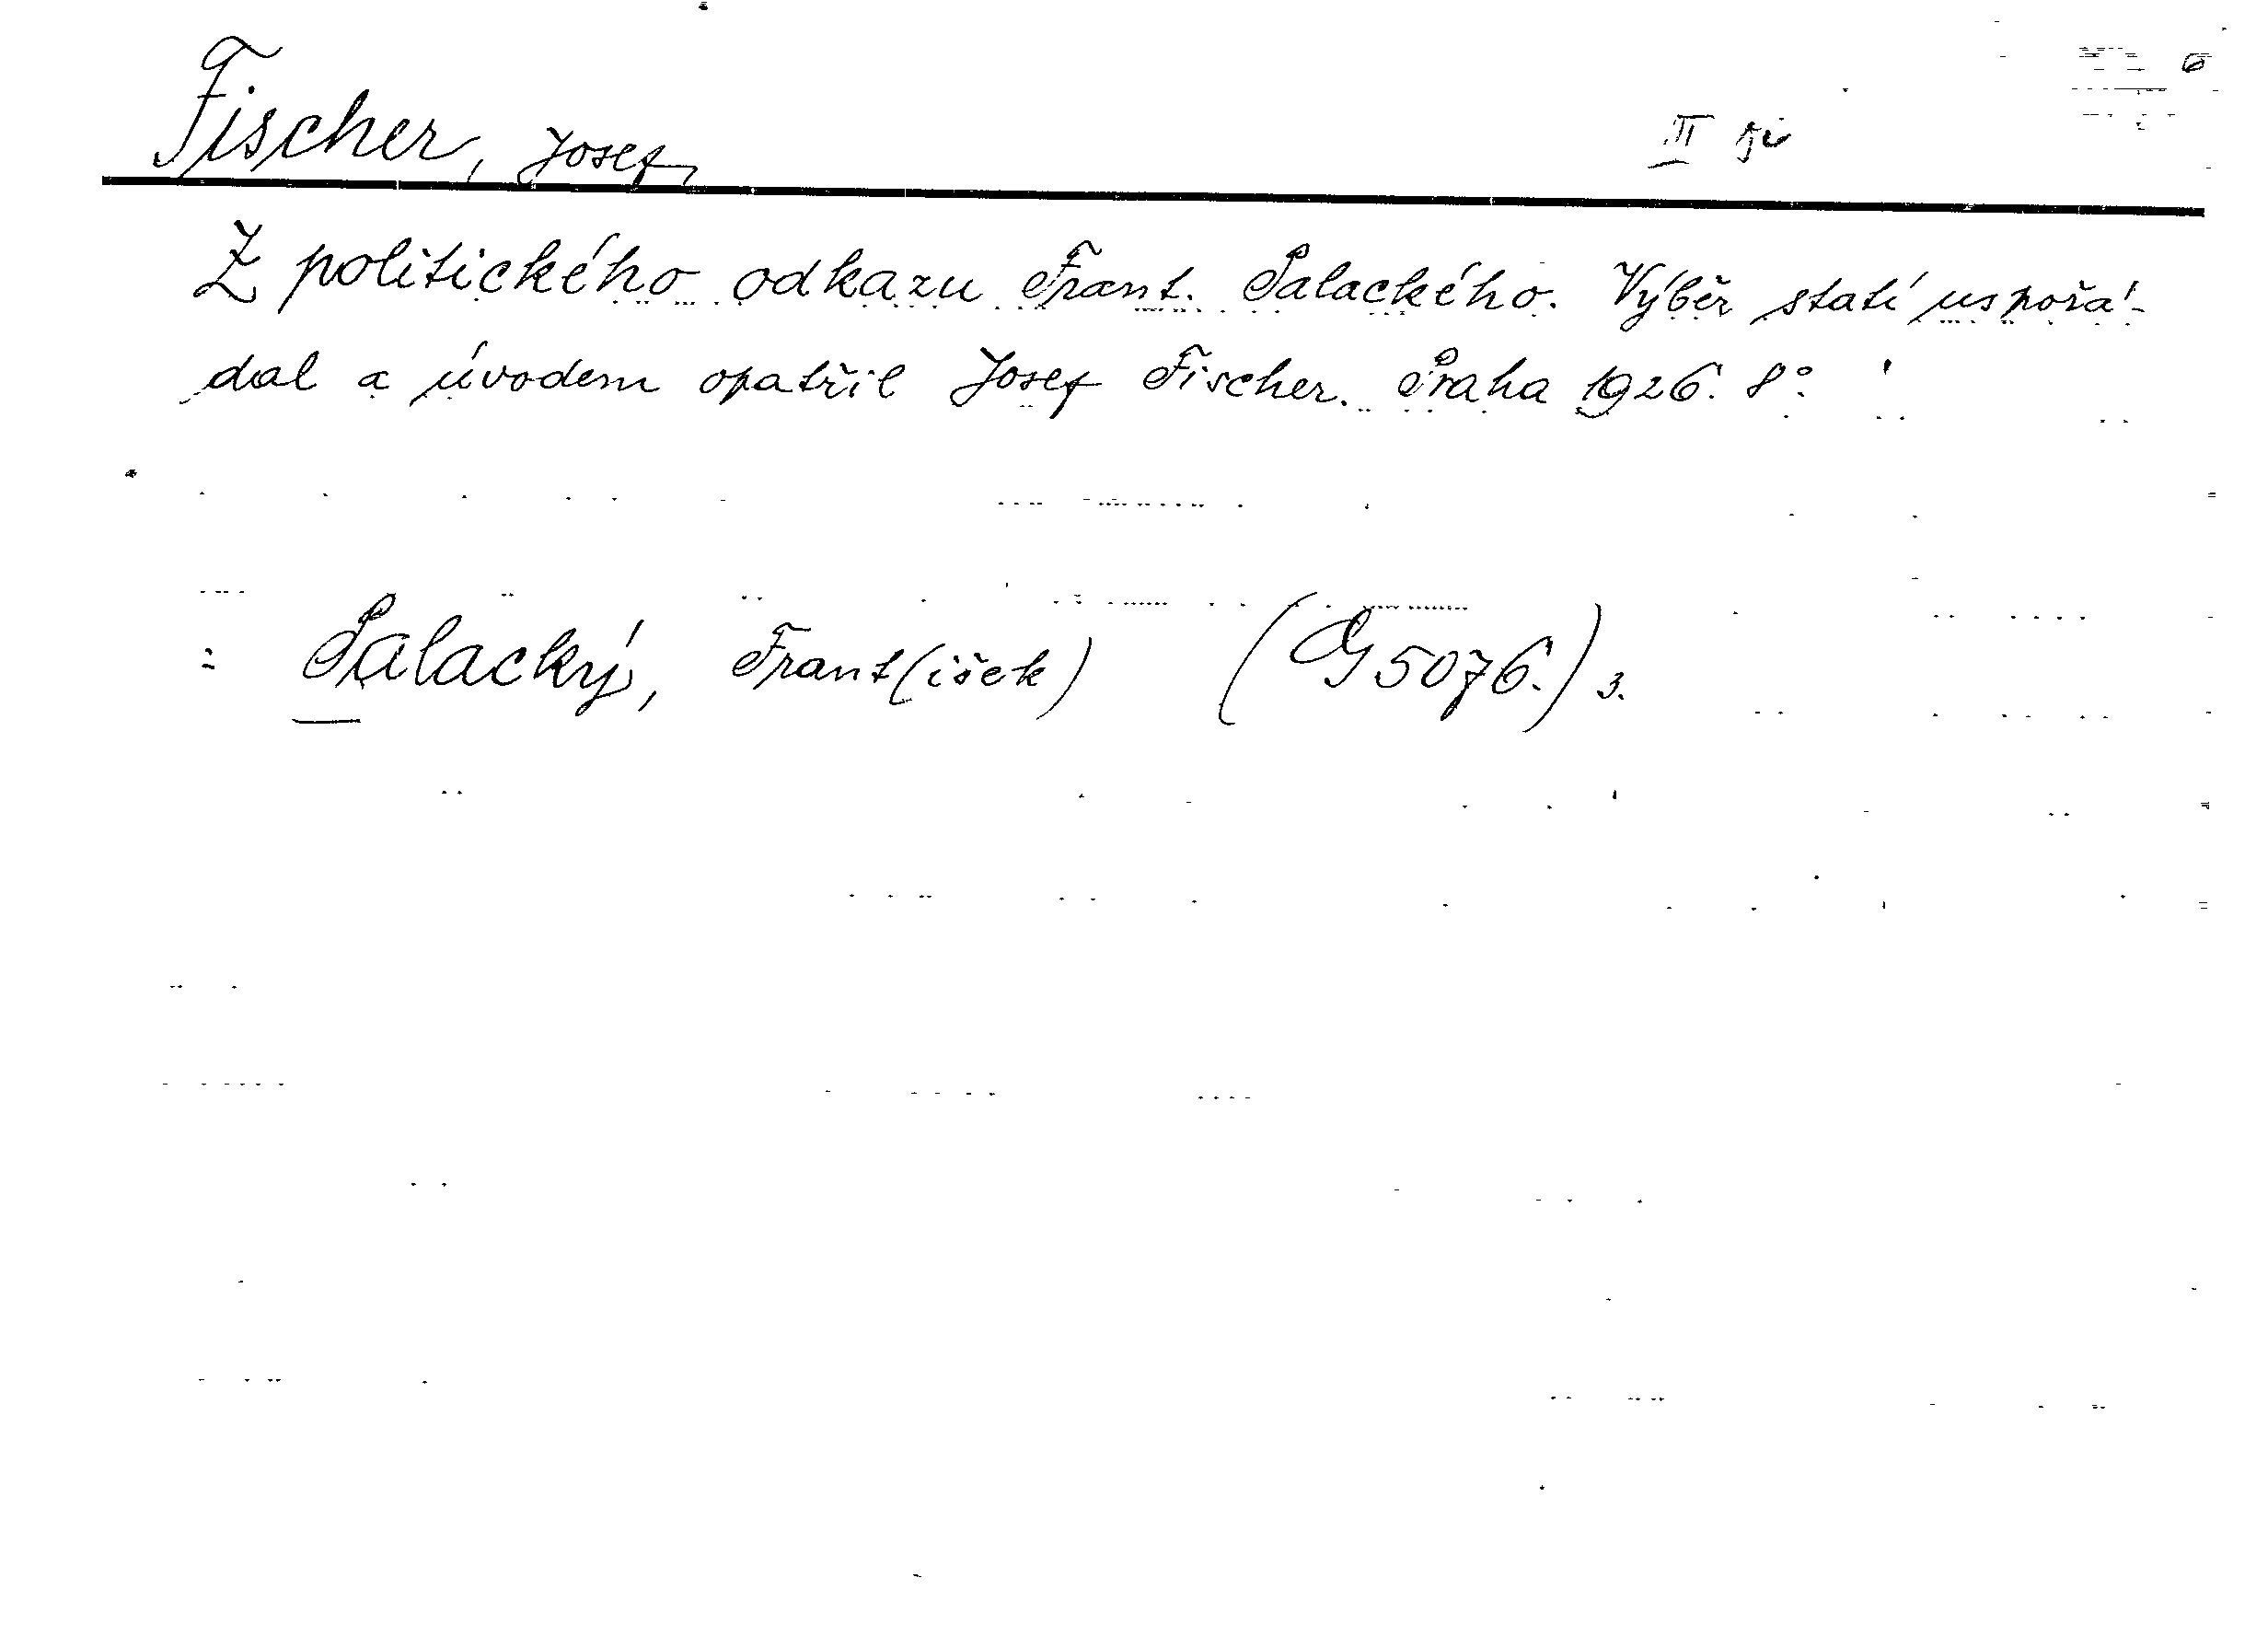 6
Fischer, Josef,
II
Z politického odkazu Frant. Palackého. Výběr statí uspořá-
dal a úvodem opatřil Josef Fischer. Praha 1926. 8°.
= Palacký, Frant(išek) (G 5076.) 3.